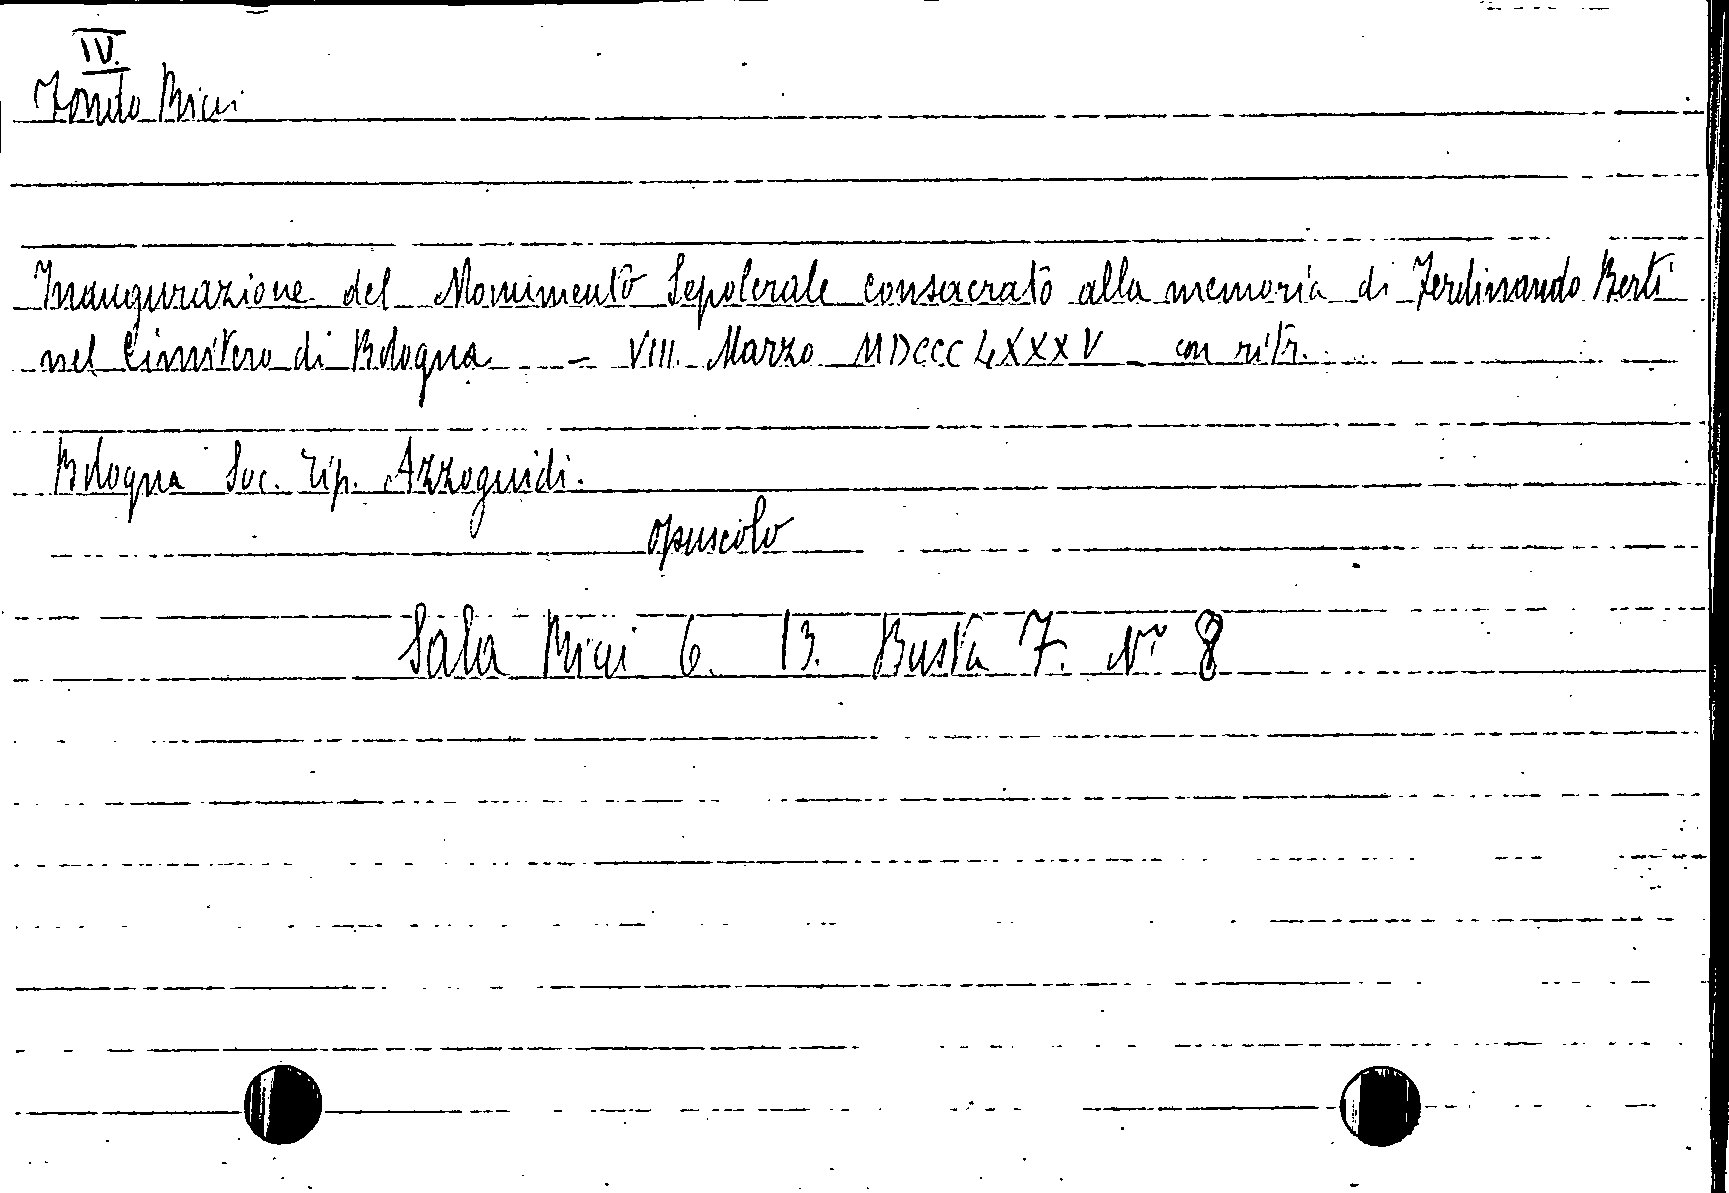 IV.
Fondo Ricci
Inaugurazione del Monumento Sepolcrale consacrato alla memoria di Ferdinando Berti
nel Cimitero di Bologna - VIII. Marzo MDCCCLXXXV con ritr.
Bologna Soc. Tip. Azzoguidi.
opuscolo
Sala Ricci 6. 13. Busta 7. Nº 8